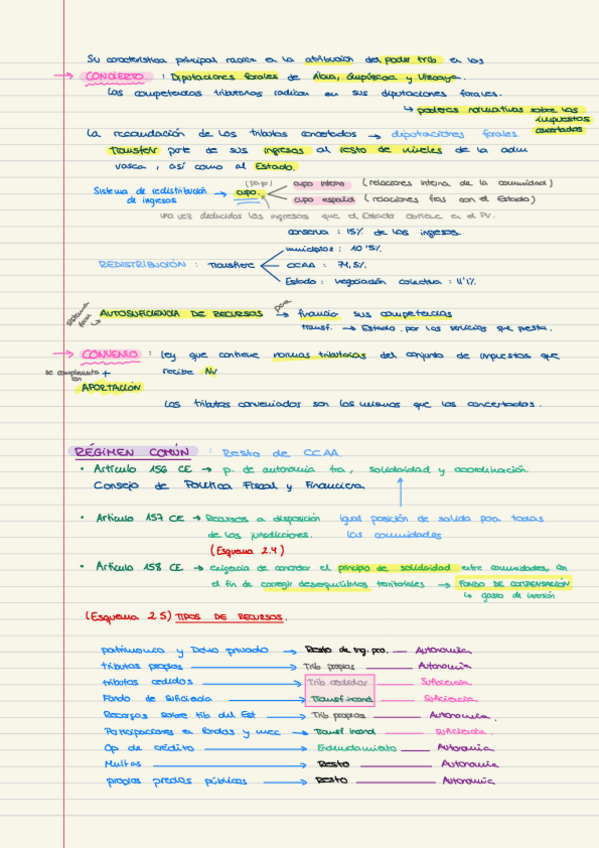 Su característica principal radica en la atribución del poder trib en las
→ CONCIERTO : Diputaciones forales de Álava, Guipúzcoa y Vizcaya.
Las competencias tributarias radican en sus diputaciones forales.
↳ poderes normativos sobre los impuestos concertados
La recaudación de los tributos concertados → diputaciones forales
Transferir parte de sus ingresos al resto de niveles de la adm
vasca, así como al Estado.
Sistema de redistribución de ingresos → cupo (pago)
cupo interno (relaciones interna de la comunidad)
cupo español (relaciones fras con el Estado)
una vez deducidos los ingresos que el Estado obtiene en el PV.
conserva : 15% de los ingresos
municipios : 10'5%
REDISTRIBUCIÓN : Transfiere CCAA : 74,5%
Estado : negociación colectiva : 11'1%
sistema foral ↳ AUTOSUFICIENCIA DE RECURSOS para → financiar sus competencias
transf. → Estado por los servicios que presta.
→ CONVENIO : ley que contiene normas tributarias del conjunto de impuestos que
se complementa con + recibe Nv
APORTACIÓN
Los tributos conveniados son los mismos que los concertados.
RÉGIMEN COMÚN : Resto de CCAA
• Artículo 156 CE → p. de autonomía fra, solidaridad y coordinación.
Consejo de Política Fiscal y Financiera
• Artículo 157 CE → Recursos a disposición igual posición de salida para todas
de las jurediciones. las comunidades
(Esquema 2.4)
• Artículo 158 CE → exigencia de concretar el principio de solidaridad entre comunidades, con
el fin de corregir desequilibrios territoriales → FONDO DE COMPENSACIÓN
↳ gasto de inversión
(Esquema 2.5) TIPOS DE RECURSOS.
patrimonio y Dcho privado → Resto de ing. pro. — Autonomia
tributos propios → Trib propios — Autonomia
tributos cedidos → Trib cedidos — Suficiencia
Fondo de Suficiecia → Transf. incond — Suficiencia
Recargos sobre trib del Est → Trib propios — Autonomia.
Participaciones en fondos y mec → Transf incond — suficiencia.
Op de crédito → Endeudamiento — Autonomia
Multas → Resto — Autonomia
propios precios públicos → Resto — Autonomia